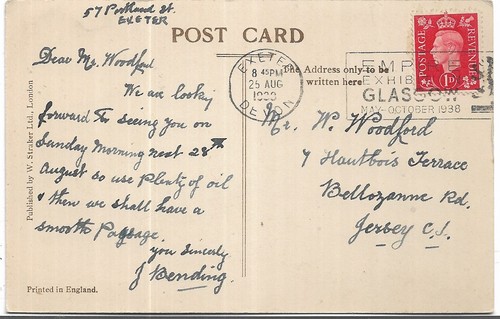 57 Portland St.
EXETER
POST CARD
Dear Mr. Woodford
We are looking
forward to seeing you on
Sunday Morning next 28th
August so use plenty of oil
& then we shall have a
smooth Passage.
you sincerly
J Bending.
Published by W. Straker Ltd., London
Printed in England.
EXETER
8 45PM
25 AUG
1938
DEVON
The Address only to be
written here
EMPIRE
EXHIBITION
GLASGOW
MAY-OCTOBER 1938
POSTAGE
REVENUE
1D
Mr. W. Woodford
7 Hautbois Terrace
Bellozanne Rd.
Jersey C.I.